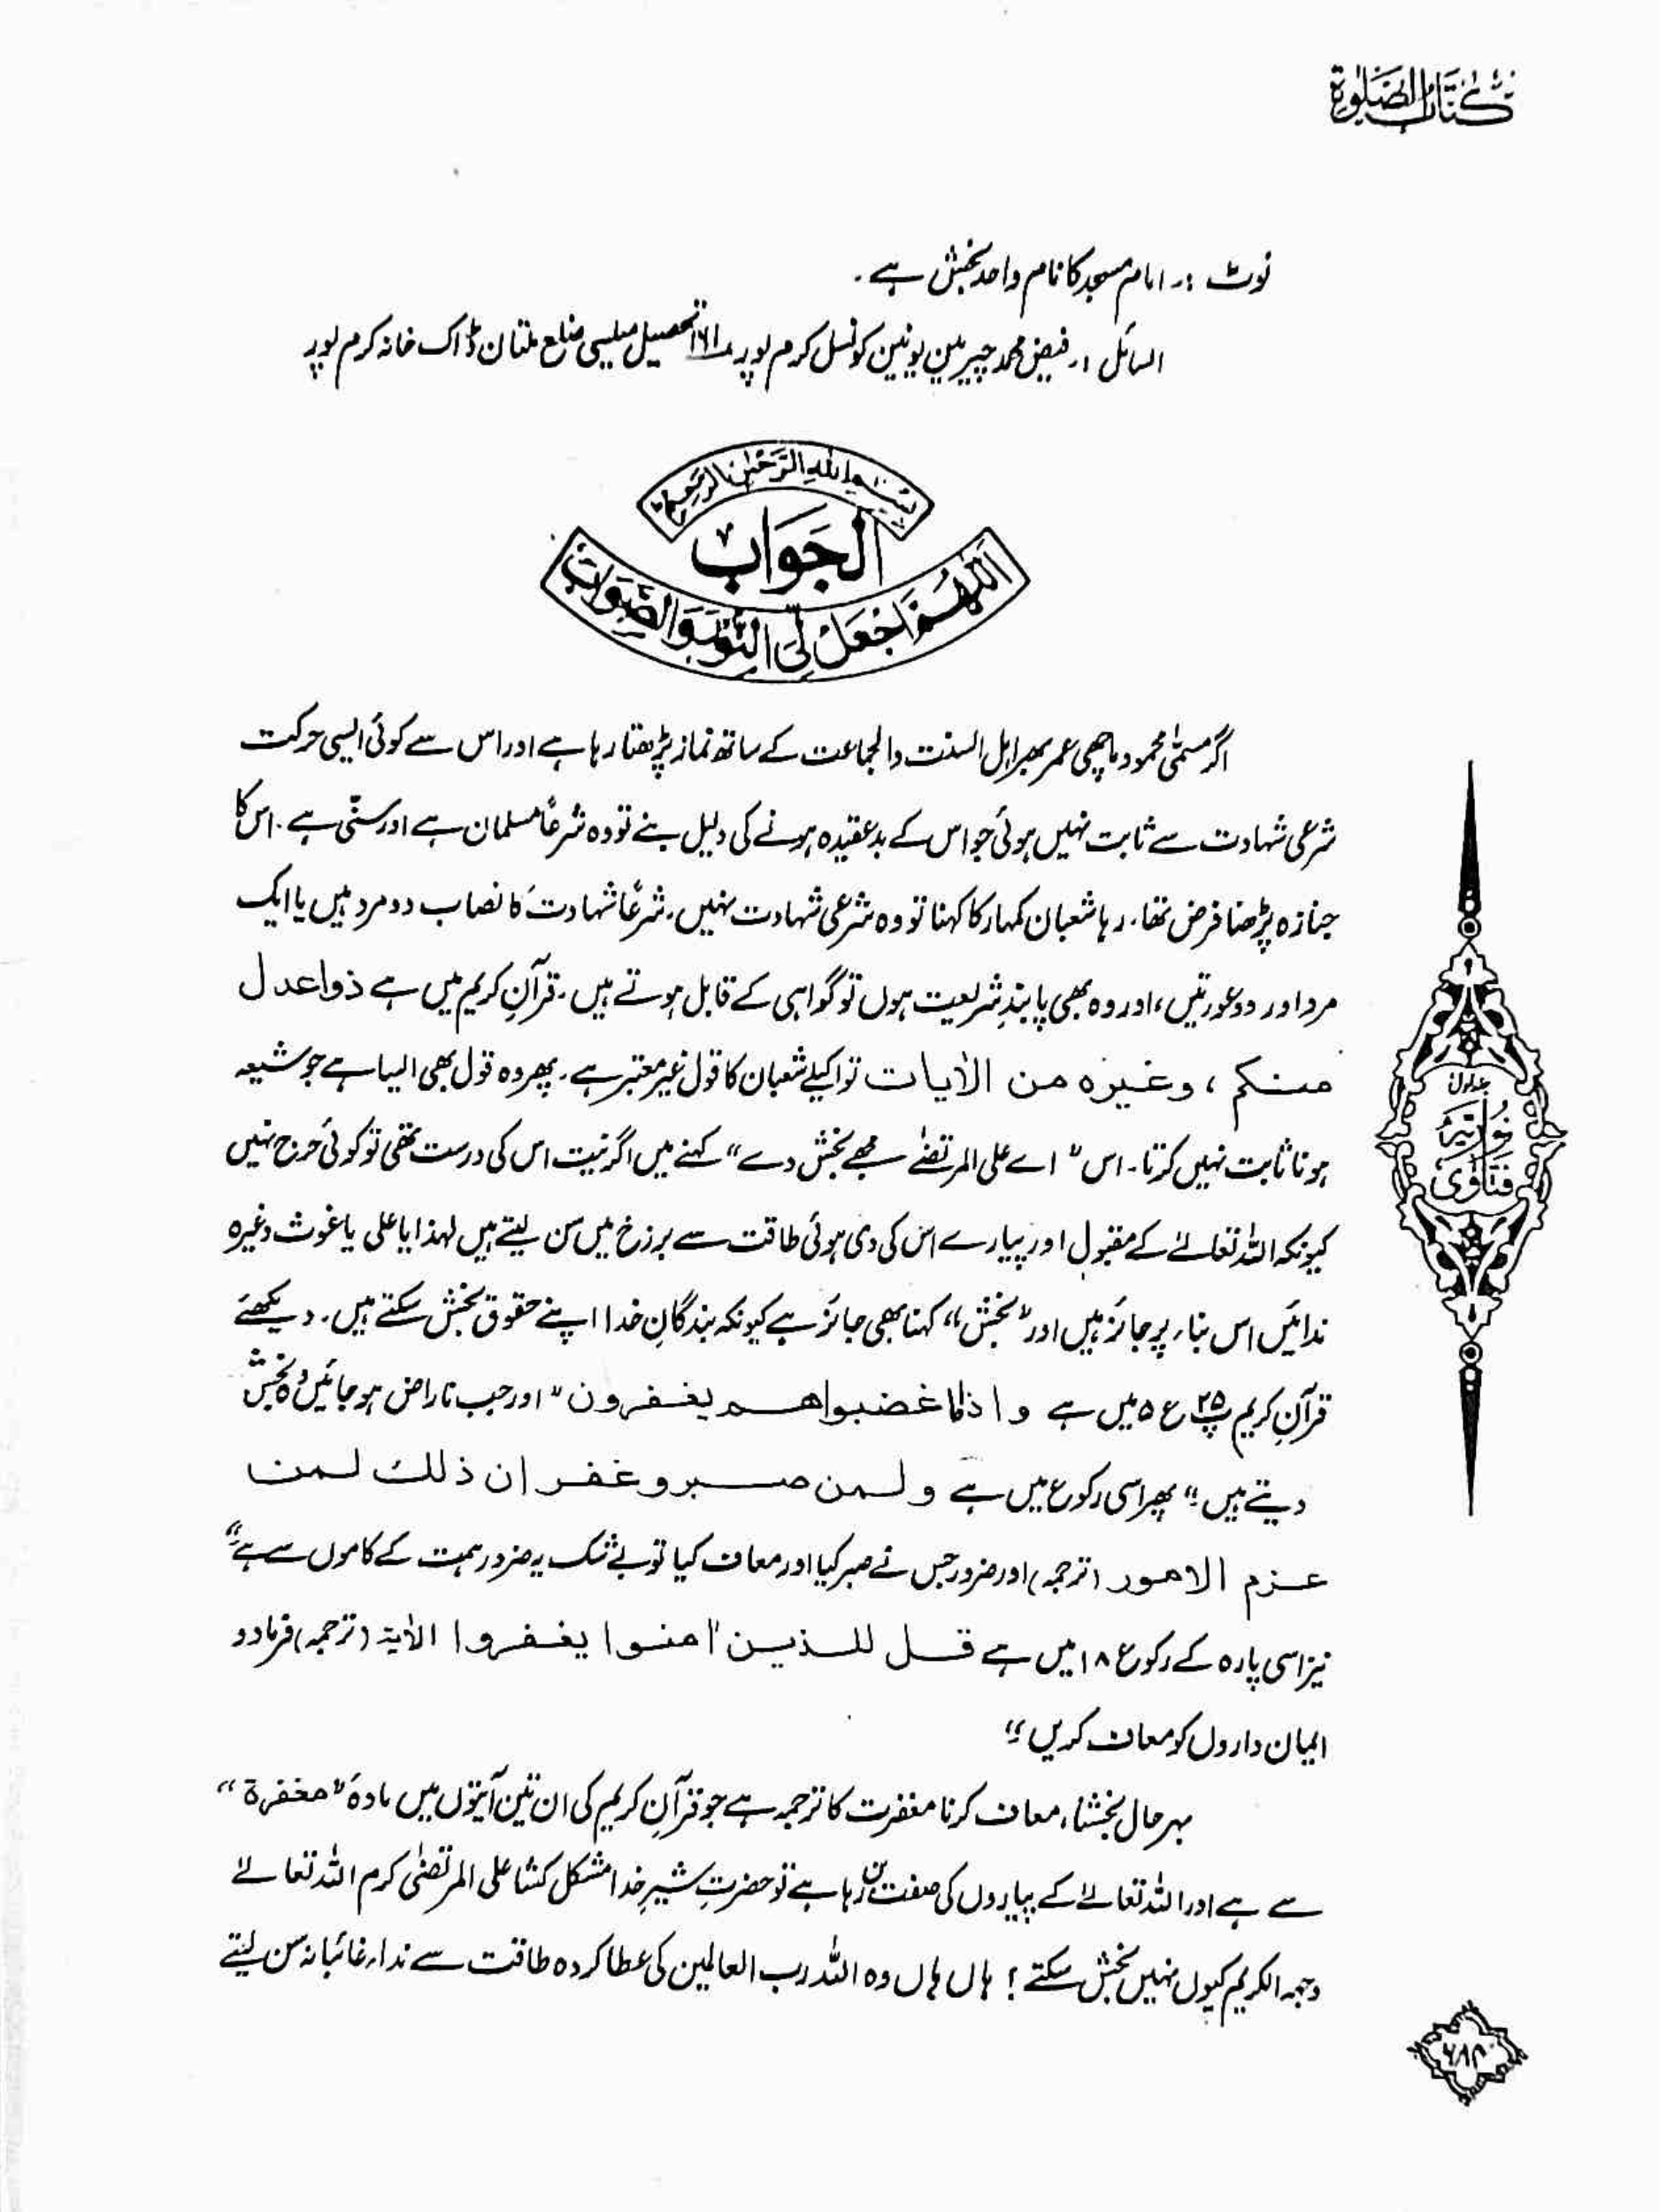 كتاب الصلوة
نوٹ :۔ امام مسجد کا نام واحد بخش ہے ۔
السائل :۔ فیض محمد چیرمین یونین کونسل کرم پور ۱۶۱ تحصیل میلسی ضلع ملتان ڈاک خانہ کرم پور
بسم الله الرحمن الرحيم
الجواب
اللهم اجعل لی النور والصواب
اگر مسمّٰی محمود ماچھی عمر بھر اہل السنت والجماعت کے ساتھ نماز پڑھتا رہا ہے اور اس سے کوئی ایسی حرکت
شرعی شہادت سے ثابت نہیں ہوئی جو اس کے بدعقیدہ ہونے کی دلیل بنے تو وہ شرعًا مسلمان ہے اور سنّی ہے ۔ اس کا
جنازہ پڑھنا فرض تھا۔ رہا شعبان کمہار کا کہنا تو وہ شرعی شہادت نہیں، شرعًا شہادت کا نصاب دو مرد ہیں یا ایک
مرد اور دو عورتیں، اور وہ بھی پابندِ شریعت ہوں تو گواہی کے قابل ہوتے ہیں ۔ قرآنِ کریم میں ہے ذوا عدل
منكم ، وغيره من الأيات تو اکیلے شعبان کا قول غیر معتبر ہے ۔ پھر وہ قول بھی ایسا ہے جو شیعہ
ہونا ثابت نہیں کرتا ۔ اس " اے علی المرتضےٰ مجھے بخش دے " کہنے میں اگر نیت اس کی درست تھی تو کوئی حرج نہیں
کیونکہ اللہ تعالےٰ کے مقبول اور پیارے اس کی دی ہوئی طاقت سے برزخ میں سن لیتے ہیں لہذا یا علی یا غوث وغیرہ
ندائیں اس بناء پر جائز ہیں اور " بخش " کہنا بھی جائز ہے کیونکہ بندگانِ خدا اپنے حقوق بخش سکتے ہیں ۔ دیکھئے
قرآنِ کریم پ ۲۵ ع ۵ میں ہے و اذا ما غضبوا هم يغفرون " اور جب ناراض ہو جائیں وہ بخش
دیتے ہیں " پھر اسی رکوع میں ہے ولمن صبر و غفر ان ذلك لمن
عزم الامور (ترجمہ) اور ضرور جس نے صبر کیا اور معاف کیا تو بے شک یہ ضرور ہمت کے کاموں سے ہے "
نیز اسی پارہ کے رکوع ۱۸ میں ہے قل للذين اٰمنوا يغفروا الأية (ترجمہ) فرما دو
ایمان داروں کو معاف کریں "
بہرحال بخشنا، معاف کرنا مغفرت کا ترجمہ ہے جو قرآنِ کریم کی ان تین آیتوں میں مادہ " مغفرة "
سے ہے اور اللہ تعالےٰ کے پیاروں کی صفت بن رہا ہے تو حضرتِ شیرِ خدا مشکل کشا علی المرتضیٰ کرم اللہ تعالےٰ
وجہہ الکریم کیوں نہیں بخش سکتے ؟ ہاں ہاں وہ اللہ رب العالمین کی عطا کردہ طاقت سے نداء غائبانہ سن لیتے
جلد اول
فتاوی نوریہ